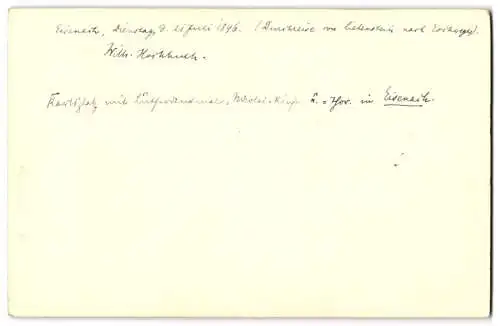 Eisenach, Dienstag, d. 21 Juli 1896. (Durchreise von Liebenstein nach
Wilh.
Karlsplatz mit Lutherdenkmal, Nicolai-Kirche u. -Thor. in Eisenach.